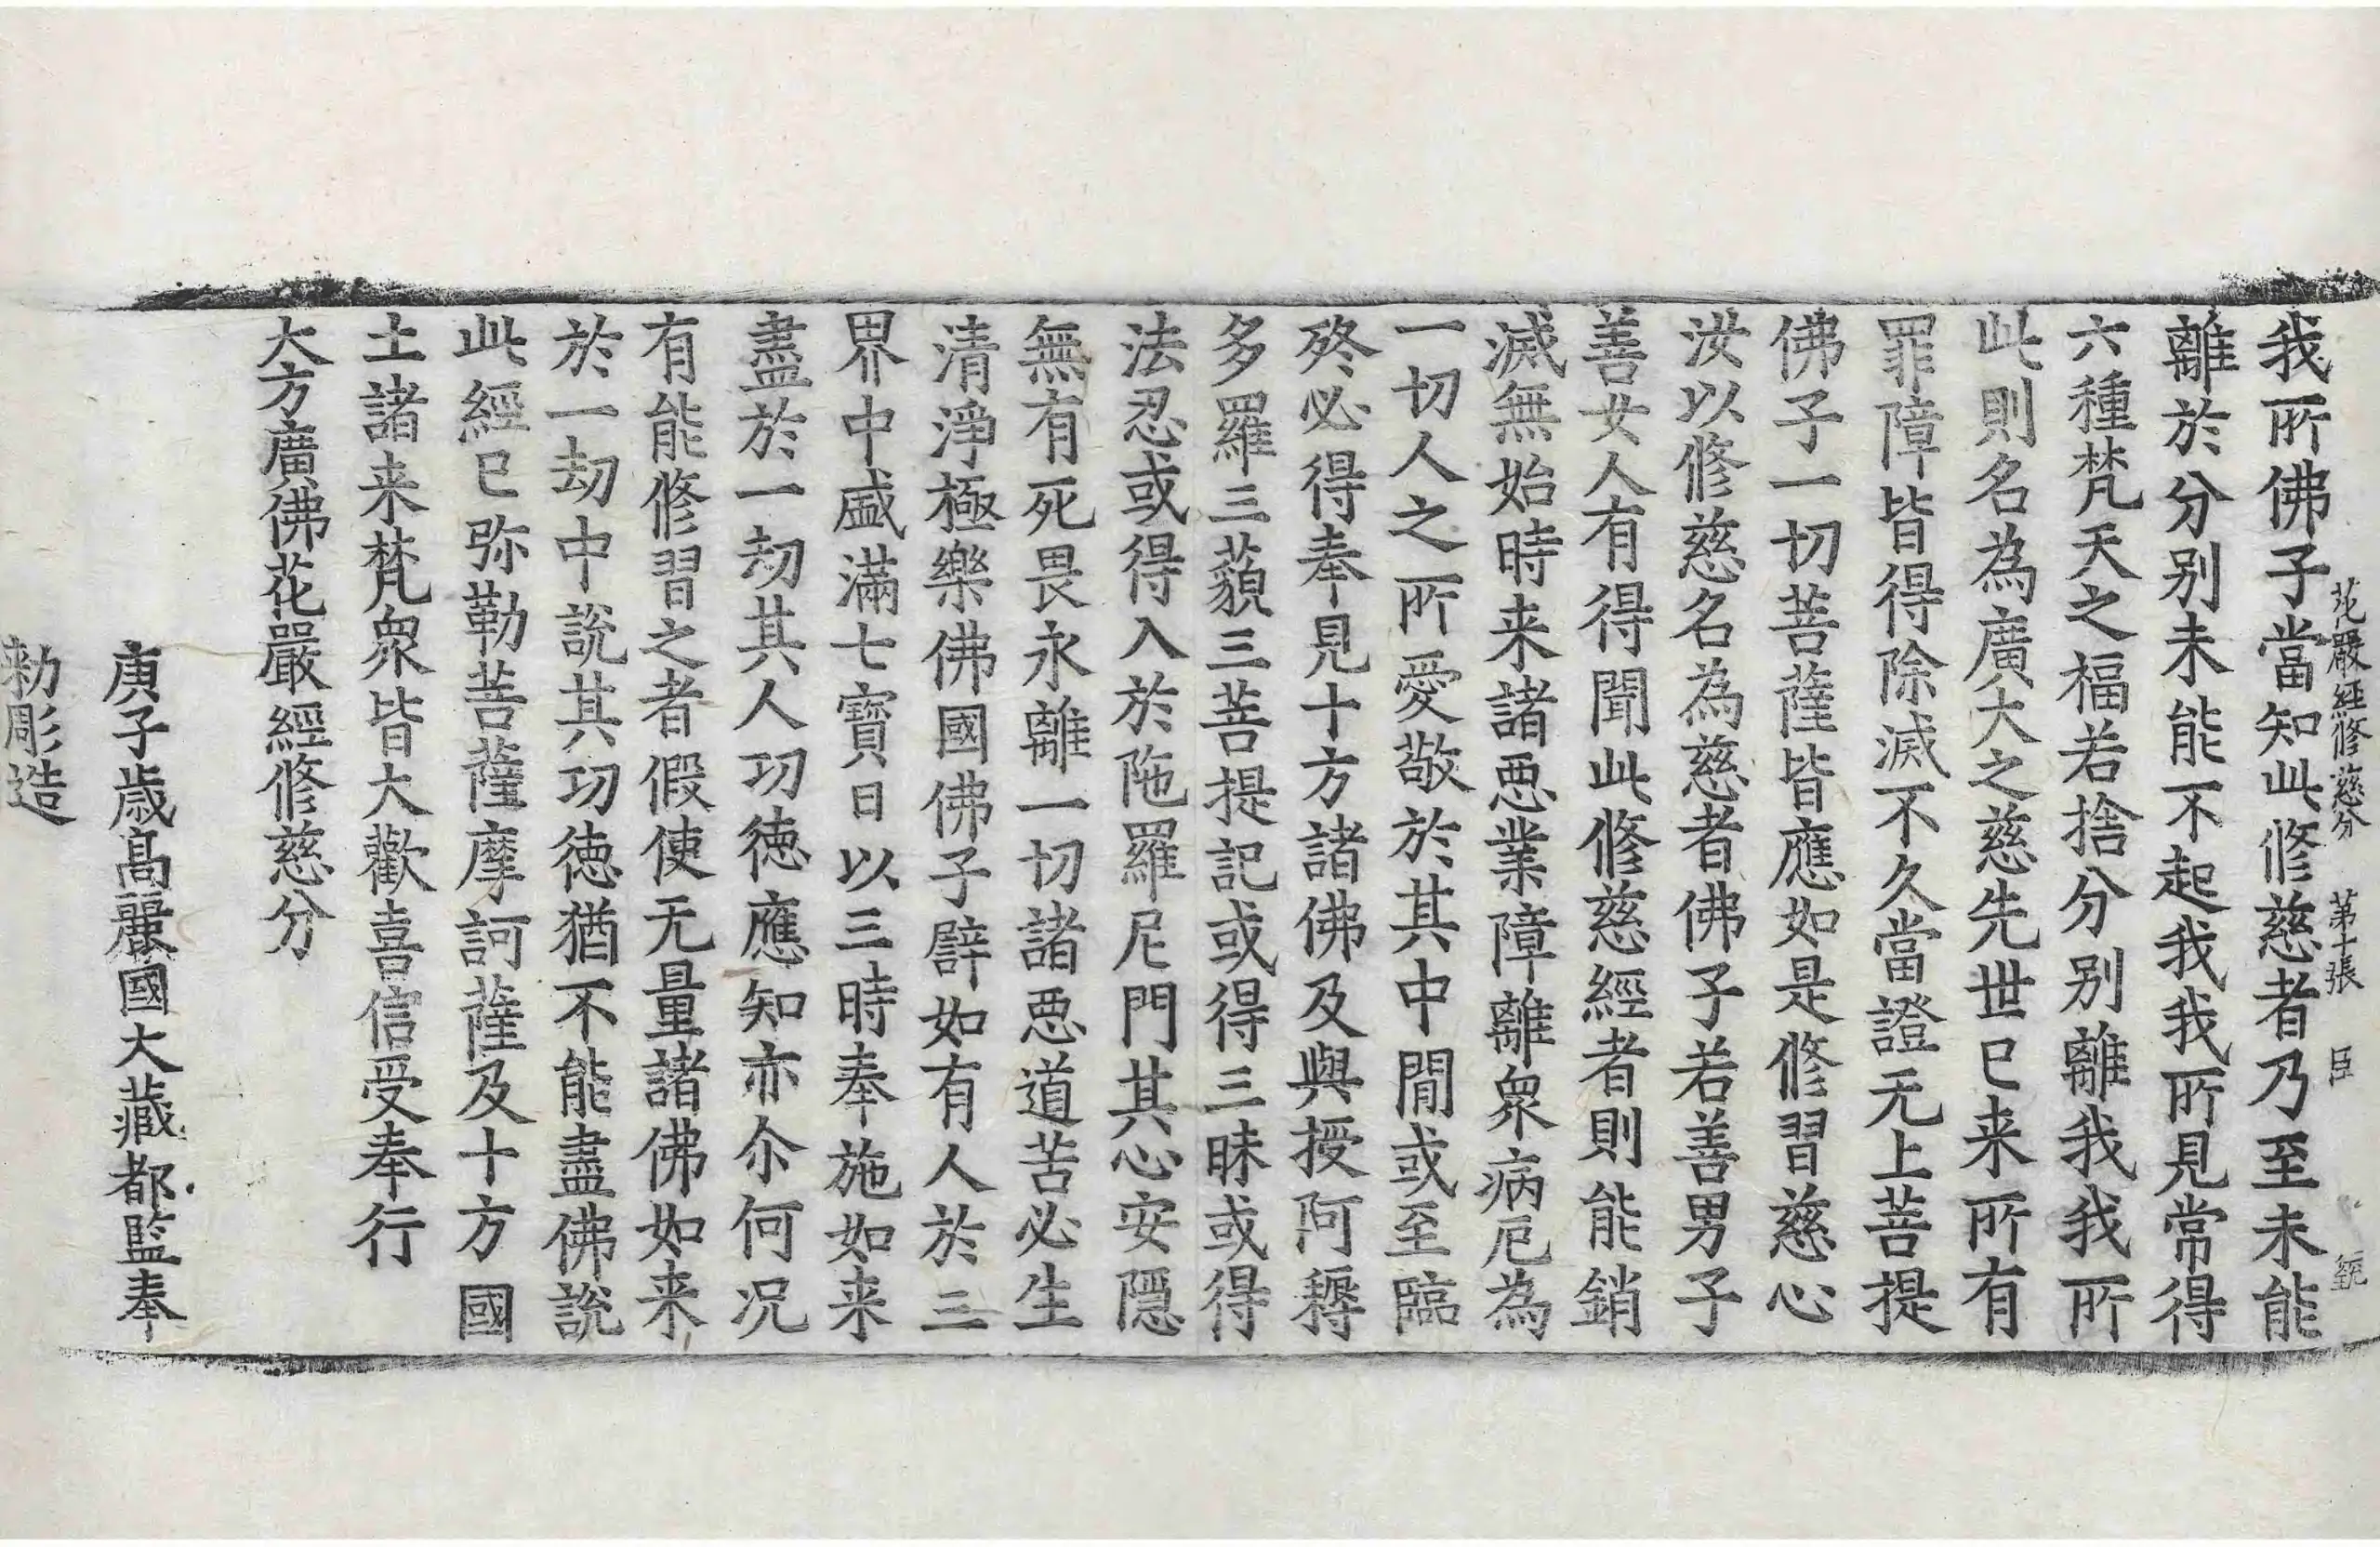 花嚴經修慈分 第十張 臣
我所佛子當知此修慈者乃至未能
離於分别未能不起我我所見常得
六種梵天之福若捨分别離我我所
此則名為廣大之慈先世已来所有
罪障皆得除滅不久當證无上菩提
佛子一切菩薩皆應如是修習慈心
汝以修慈名為慈者佛子若善男子
善女人有得聞此修慈經者則能銷
滅無始時来諸惡業障離衆病厄為
一切人之所愛敬於其中閒或至臨
終必得奉見十方諸佛及與授阿耨
多羅三藐三菩提記或得三昧或得
法忍或得入於陁羅尼門其心安隱
無有死畏永離一切諸惡道苦必生
清淨極樂佛國佛子譬如有人於三
界中盛滿七寶日以三時奉施如来
盡於一劫其人功徳應知亦尒何况
有能修習之者假使无量諸佛如来
於一劫中說其功徳猶不能盡佛說
此經已弥勒菩薩摩訶薩及十方國
土諸来梵衆皆大歡喜信受奉行
大方廣佛花嚴經修慈分
庚子歳高麗國大藏都監奉
勑彫造